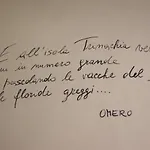 E all'isola Trinachia ve
in numero grande
pascolando le vacche del
e floride greggi....
OMERO